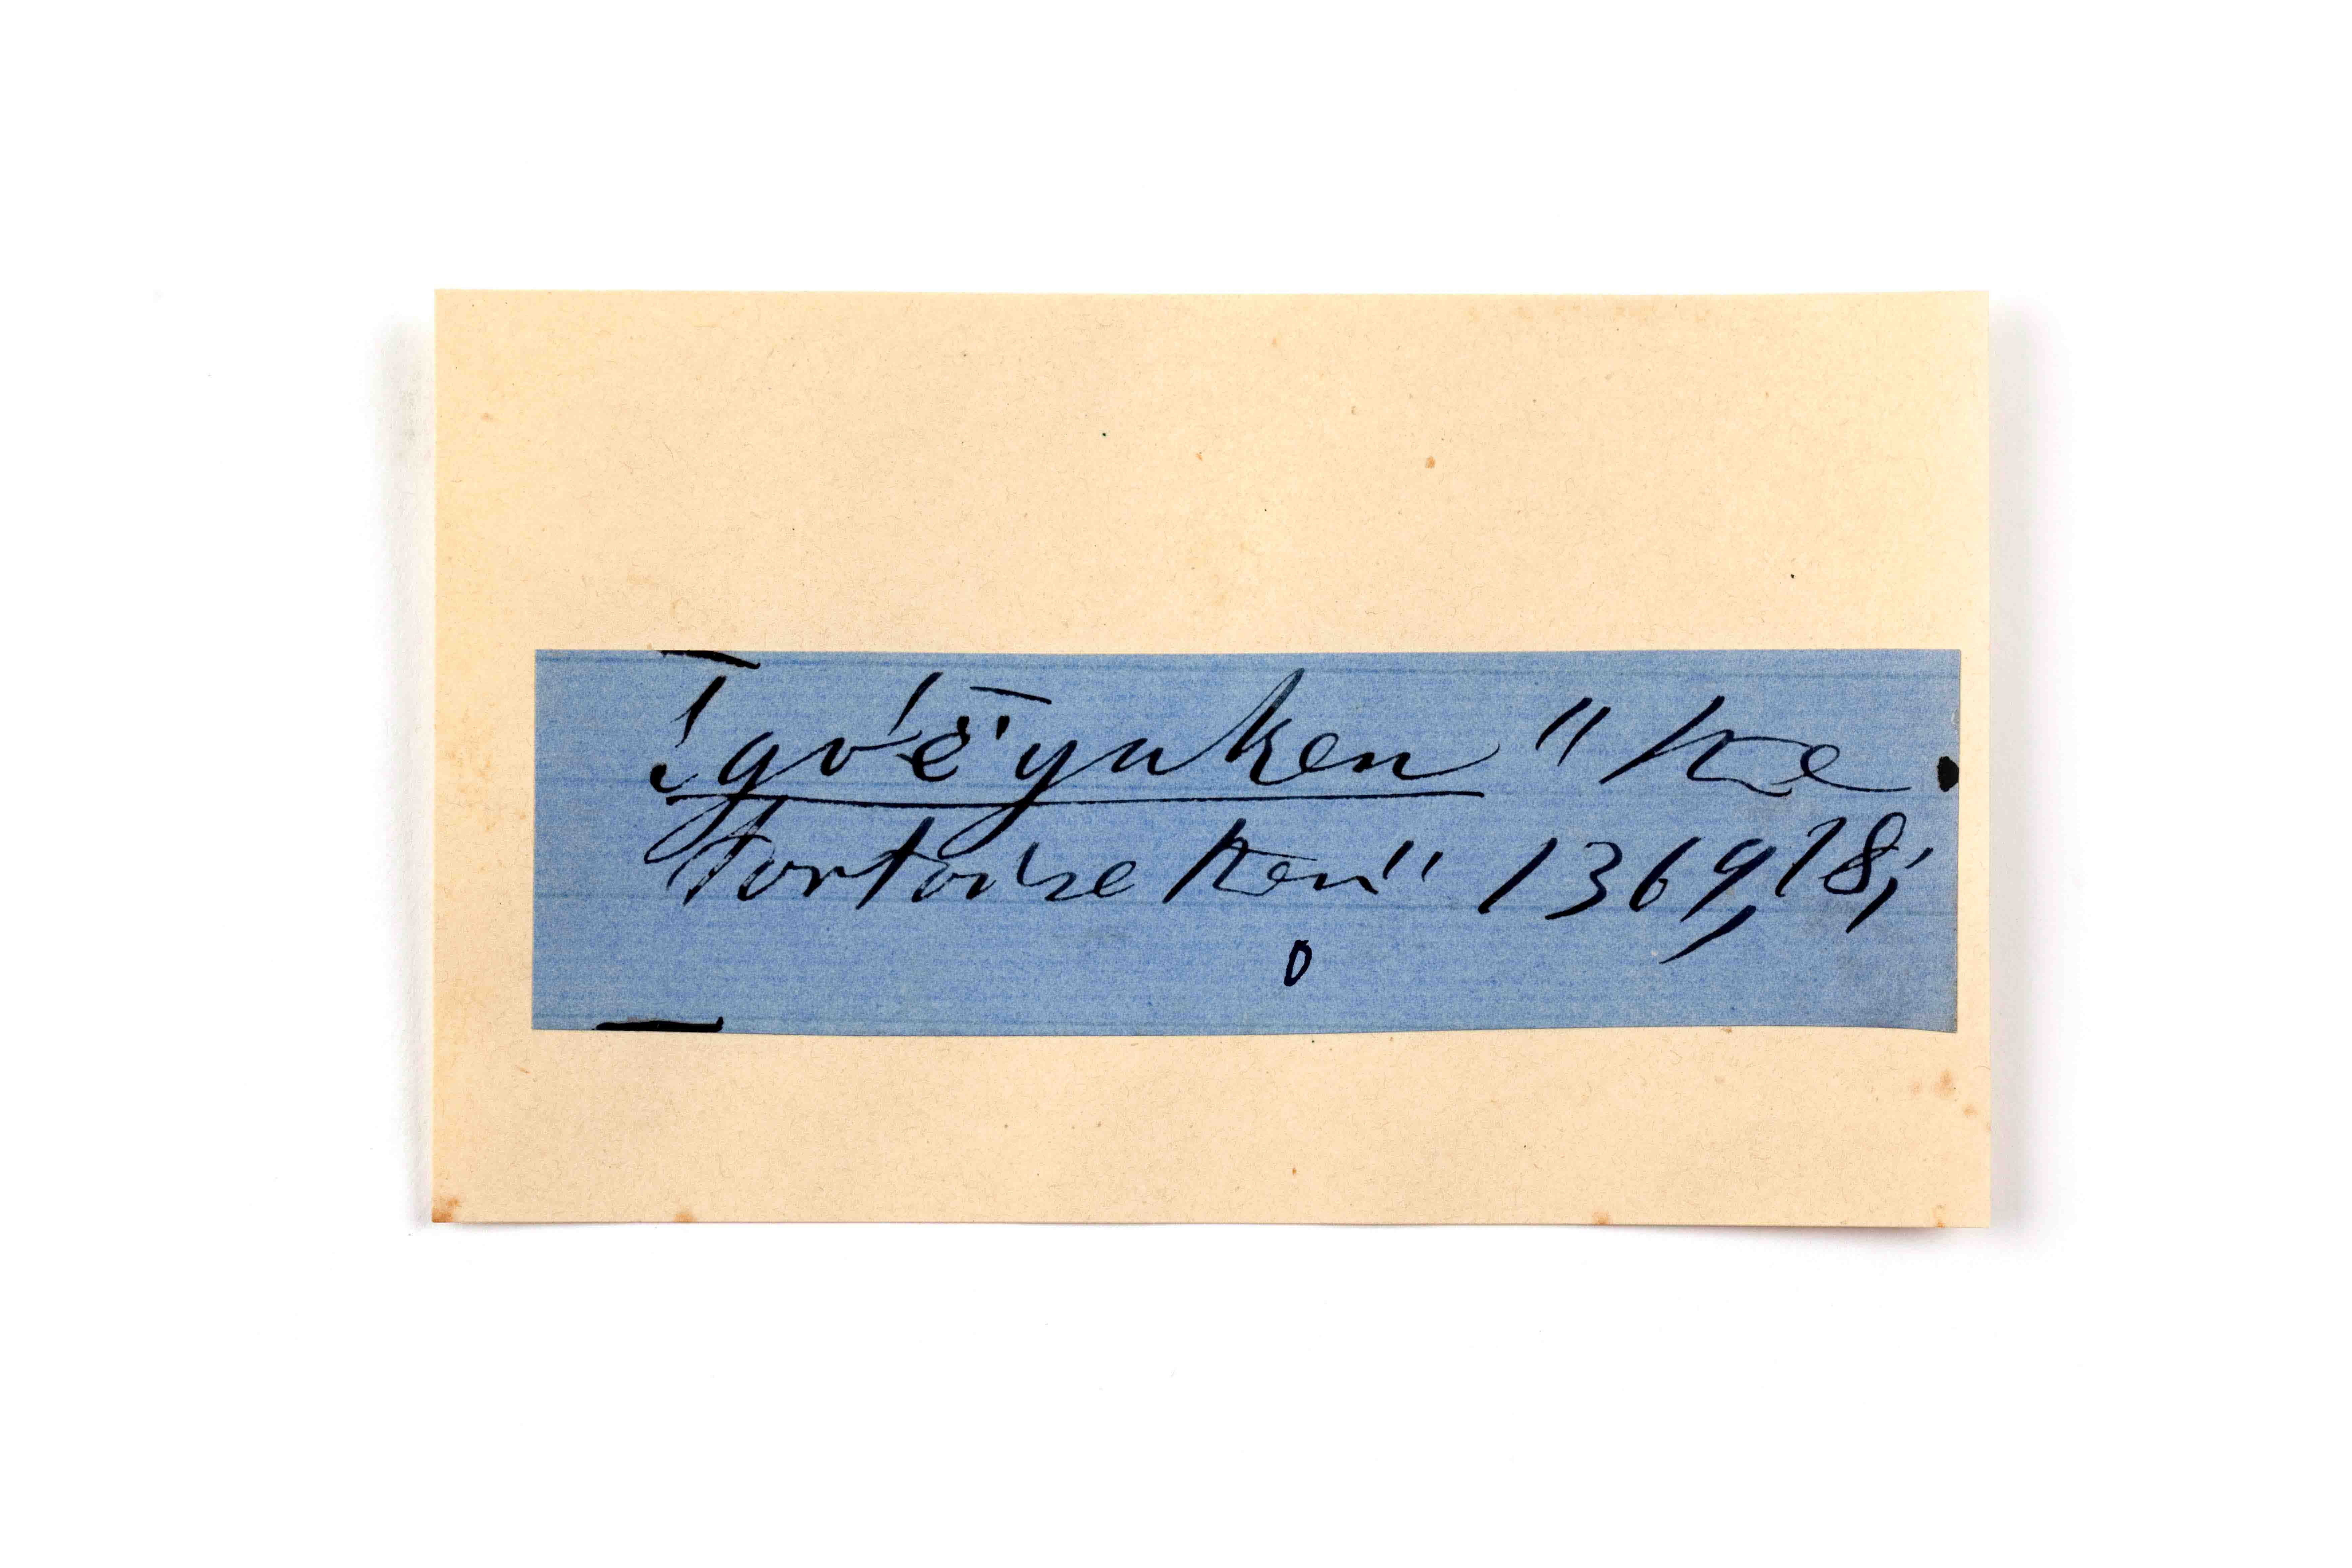 !gó̄ë yuken "the
Tortoise ken" 1369,18;
0